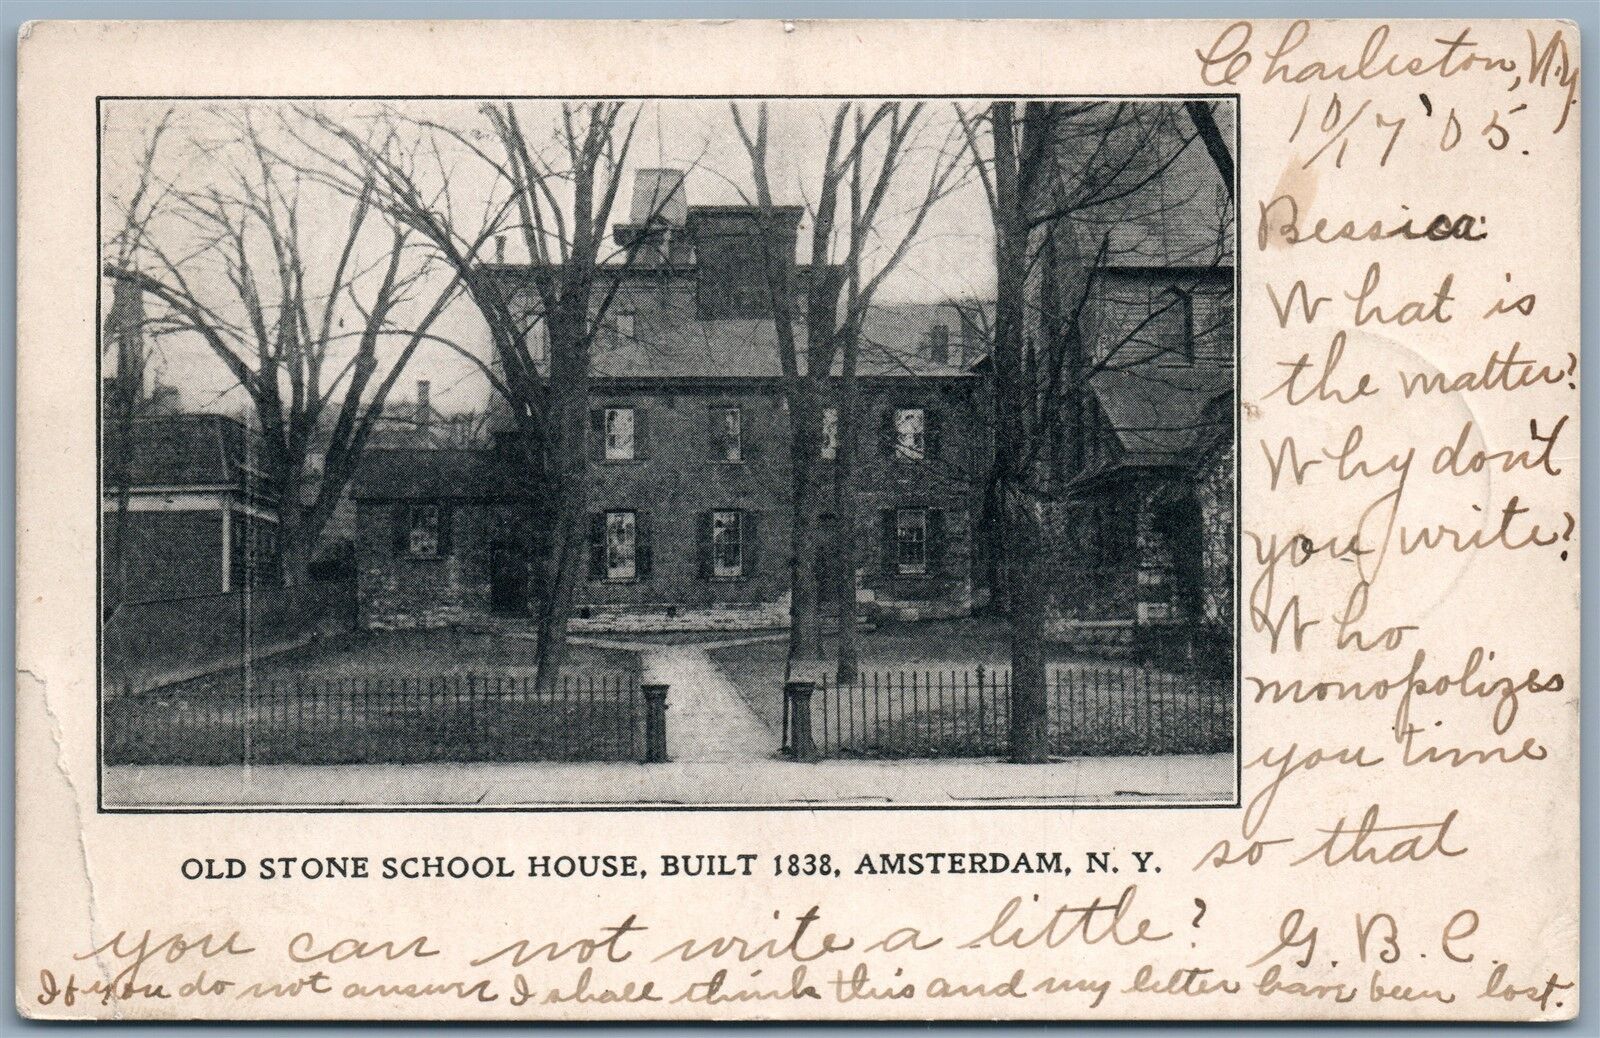 Charleston, N.Y.
10/17 '05.
Bessica:
What is
the matter?
Why don't
you write?
Who
monopolizes
you time
so that
OLD STONE SCHOOL HOUSE, BUILT 1838, AMSTERDAM, N. Y.
you can not write a little? G. B. C.
If you do not answer I shall think this and my letter have been lost.